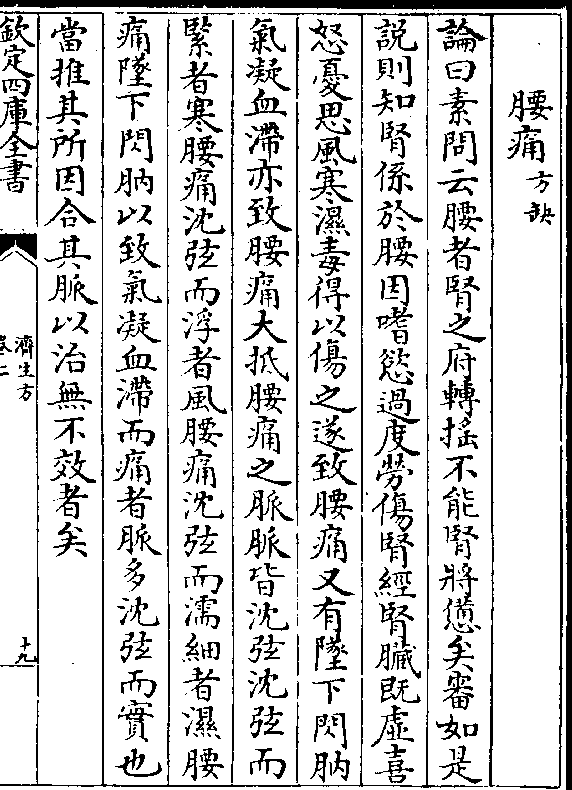 腰痛方缺
論曰素問云腰者腎之府轉搖不能腎將憊矣審如是
説則知腎係於腰因嗜慾過度勞傷腎經腎臟既虛喜
怒憂思風寒濕毒得以傷之遂致腰痛又有墜下閃肭
氣凝血滯亦致腰痛大抵腰痛之脈脈皆沈弦沈弦而
緊者寒腰痛沈弦而浮者風腰痛沈弦而濡細者濕腰
痛墜下閃肭以致氣凝血滯而痛者脈多沈弦而實也
當推其所因合其脈以治無不效者矣
欽定四庫全書
濟生方
卷二
十九